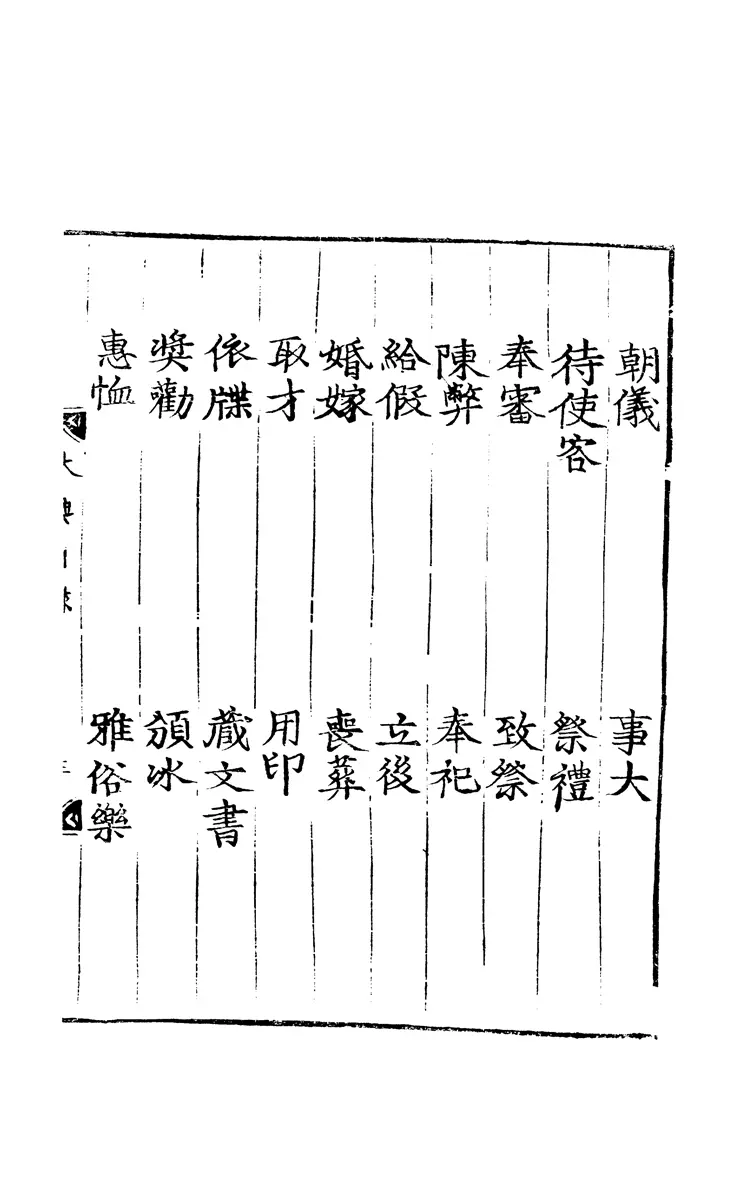 朝儀 事大
待使客 祭禮
奉審 致祭
陳弊 奉祀
給假 立後
婚嫁 喪葬
取才 用印
依牒 藏文書
奬勸 頒冰
惠恤 雅俗樂
大典目錄